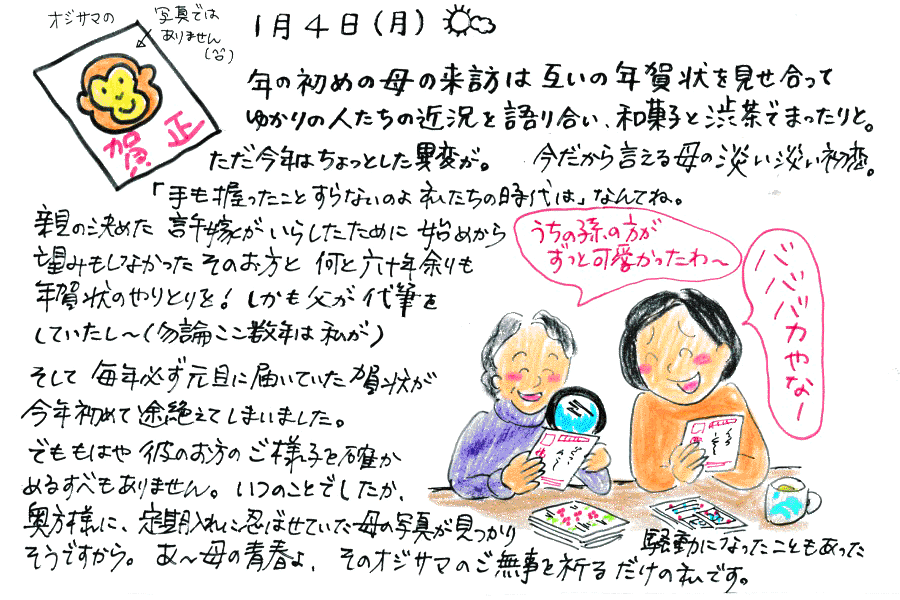 オジサマの
写真では
ありません
(笑)
賀正
1月4日(月)
年の初めの母の来訪は互いの年賀状を見せ合って
ゆかりの人たちの近況を語り合い、和菓子と渋茶でまったりと。
ただ今年はちょっとした異変が。 今だから言える母の淡い淡い初恋。
「手も握ったことすらないのよ私たちの時代は」なんてね。
親の決めた許嫁がいらしたために始めから
望みもしなかったそのお方と何と六十年余りも
年賀状のやりとりを!しかも父が代筆を
していたし〜(勿論ここ数年は私が)
そして毎年必ず元旦に届いていた賀状が
今年初めて途絶えてしまいました。
でももはや彼のお方のご様子を確か
めるすべもありません。いつのことでしたか、
奥方様に、定期入れに忍ばせていた母の写真が見つかり
騒動になったこともあった
そうですから。あ〜母の青春よ、そのオジサマのご無事を祈るだけの私です。
うちの孫の方が
ずっと可愛かったわ〜
ババババカやな〜